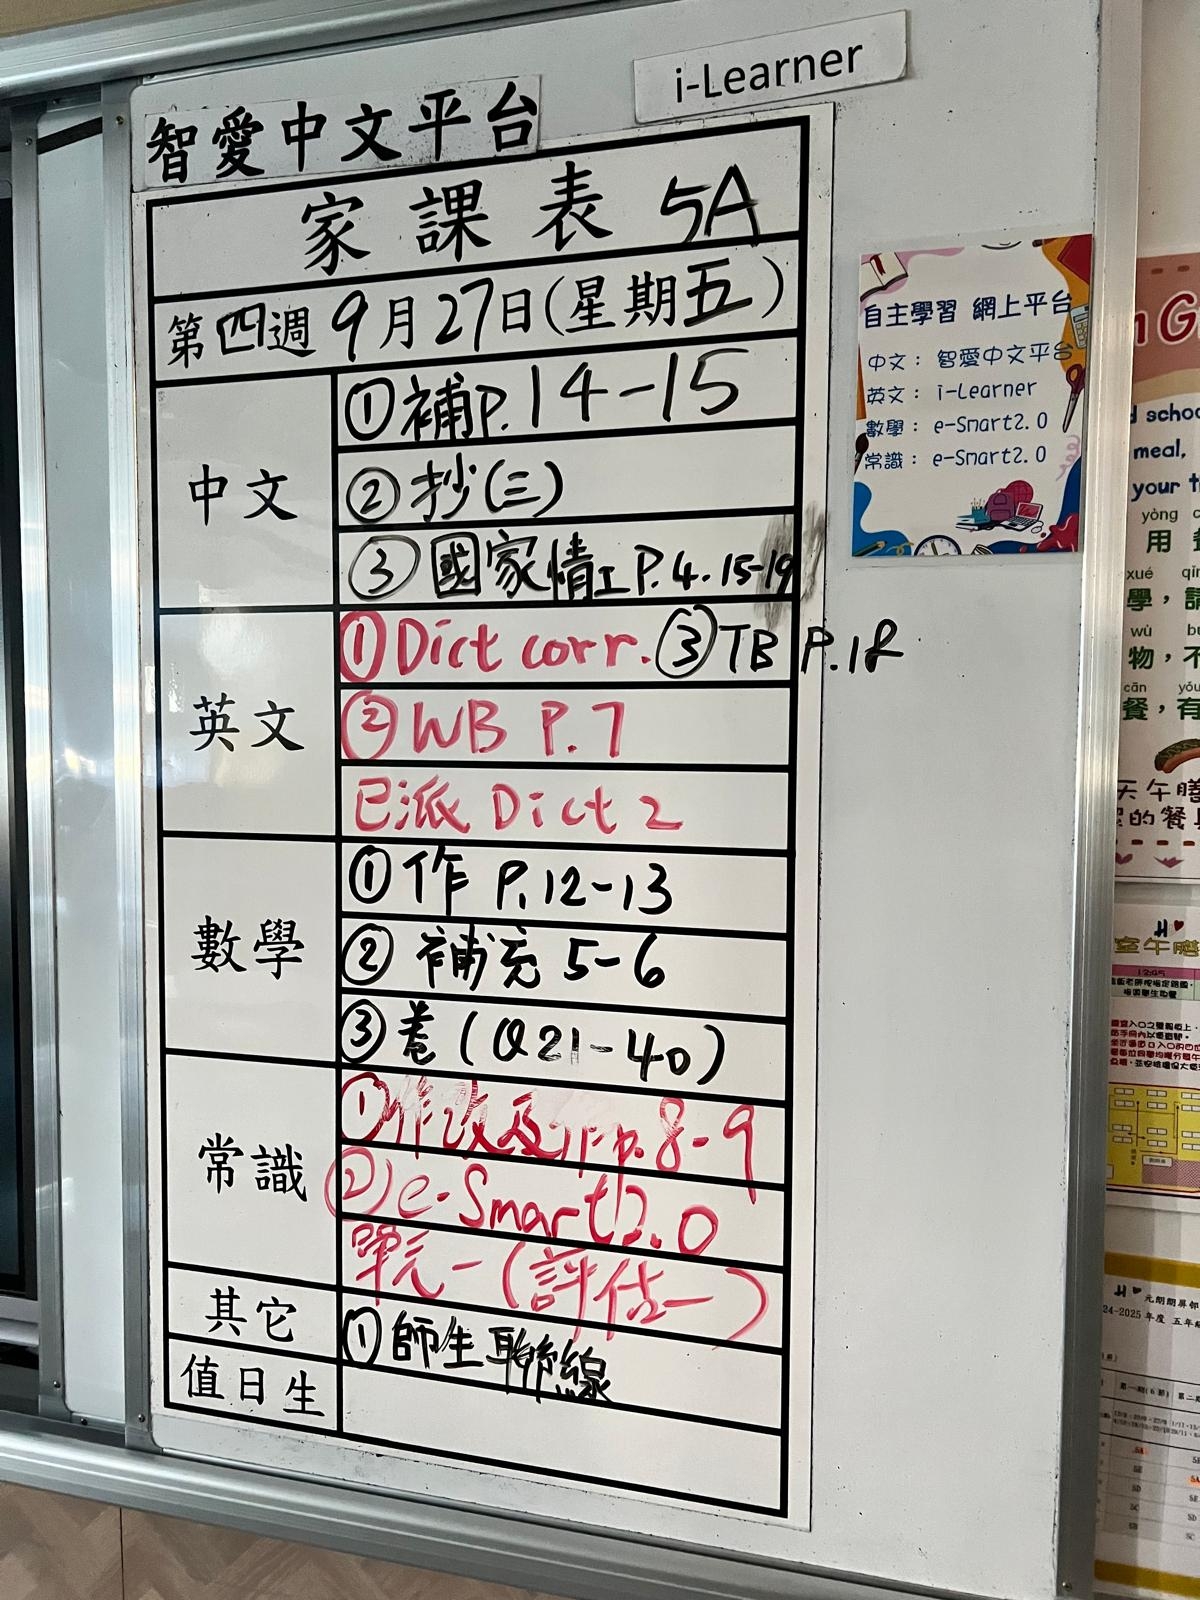 智愛中文平台
i-Learner
家課表 5A
第四週 9月27日(星期五)
中文
①補P.14-15
②抄(三)
③國家情工P.4.15-19
英文
①Dict corr. ③TB P.18
②WB P.7
已派 Dict 2
數學
①作 P.12-13
②補充 5-6
③卷(Q21-40)
常識
①作改及作p.8-9
②e-Smart2.0
單元一(評估一)
其它
①師生聯線
值日生
自主學習 網上平台
中文: 智愛中文平台
英文: i-Learner
數學: e-Smart2.0
常識: e-Smart2.0
meal,
your
yòng
用
xué
學,
wù
物,
cān yǒu
餐,有
天午膳
的餐具
12:45